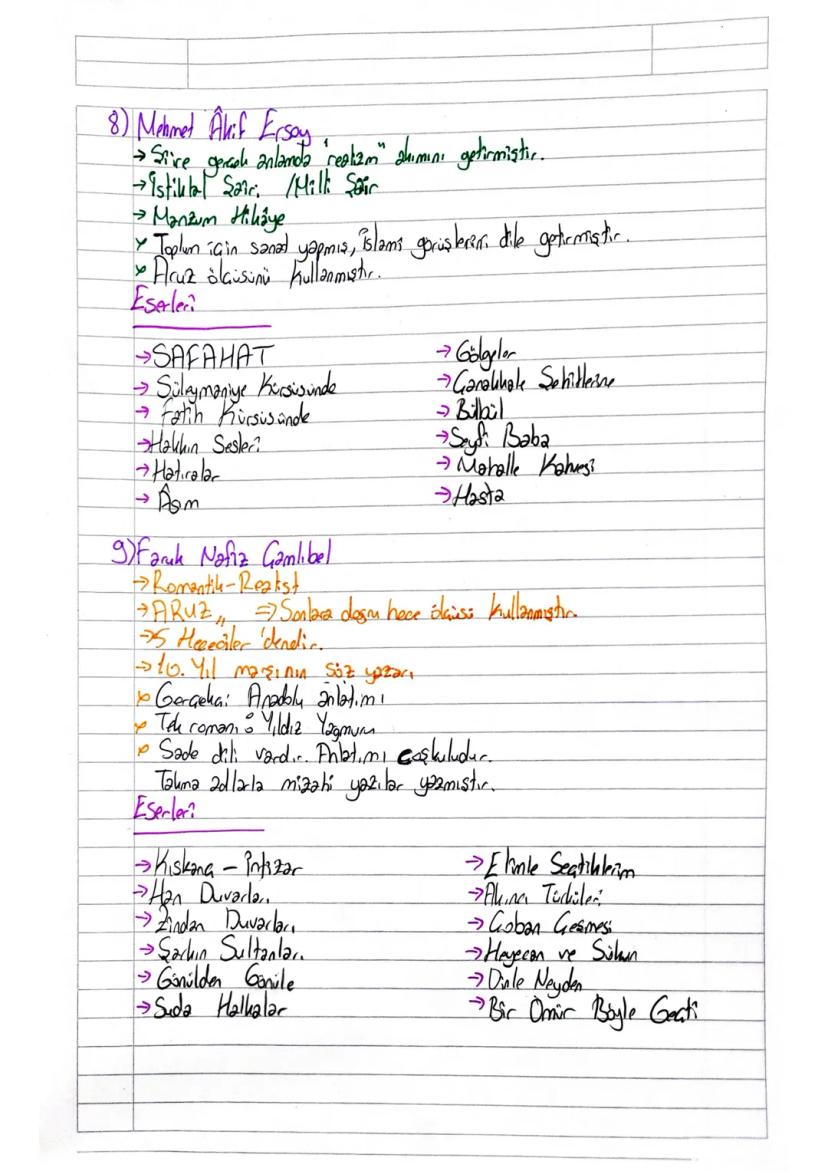 8) Mehmet Âkif Ersoy
→ Şiire gerçek anlamda "realizm" akımını getirmiştir.
→ İstiklal Şairi /Milli Şair
→ Manzum Hikâye
Toplum için sanat yapmış, İslami görüşlerini dile getirmiştir.
Aruz ölçüsünü kullanmıştır.
Eserleri
→ SAFAHAT
→ Süleymaniye Kürsüsünde
→ Fatih Kürsüsünde
→ Hakkın Sesleri
→ Hatıralar
→ Âsım
→ Gölgeler
→ Çanakkale Şehitlerine
→ Bülbül
→ Seyfi Baba
→ Mahalle Kahvesi
→ Hasta
9) Faruk Nafiz Çamlıbel
→ Romantik-Realist
→ ARUZ,, => Sonlara doğru hece ölçüsü kullanmıştır.
→ 5 Hececiler 'dendir.
→ 10. Yıl marşının söz yazarı
Gerçekçi Anadolu anlatımı
Tek romanı: Yıldız Yağmuru
Sade dili vardır. Anlatımı coşkuludur.
Takma adlarla mizahi yazılar yazmıştır.
Eserleri
→ Kıskanç - İntizar
→ Han Duvarları
→ Zindan Duvarları
→ Şarkın Sultanları
→ Gönülden Gönüle
→ Suda Halkalar
→ Elimle Seçtiklerim
→ Akıncı Türküleri
→ Çoban Çeşmesi
→ Heyecan ve Sükun
→ Dinle Neyden
→ Bir Ömür Böyle Geçti